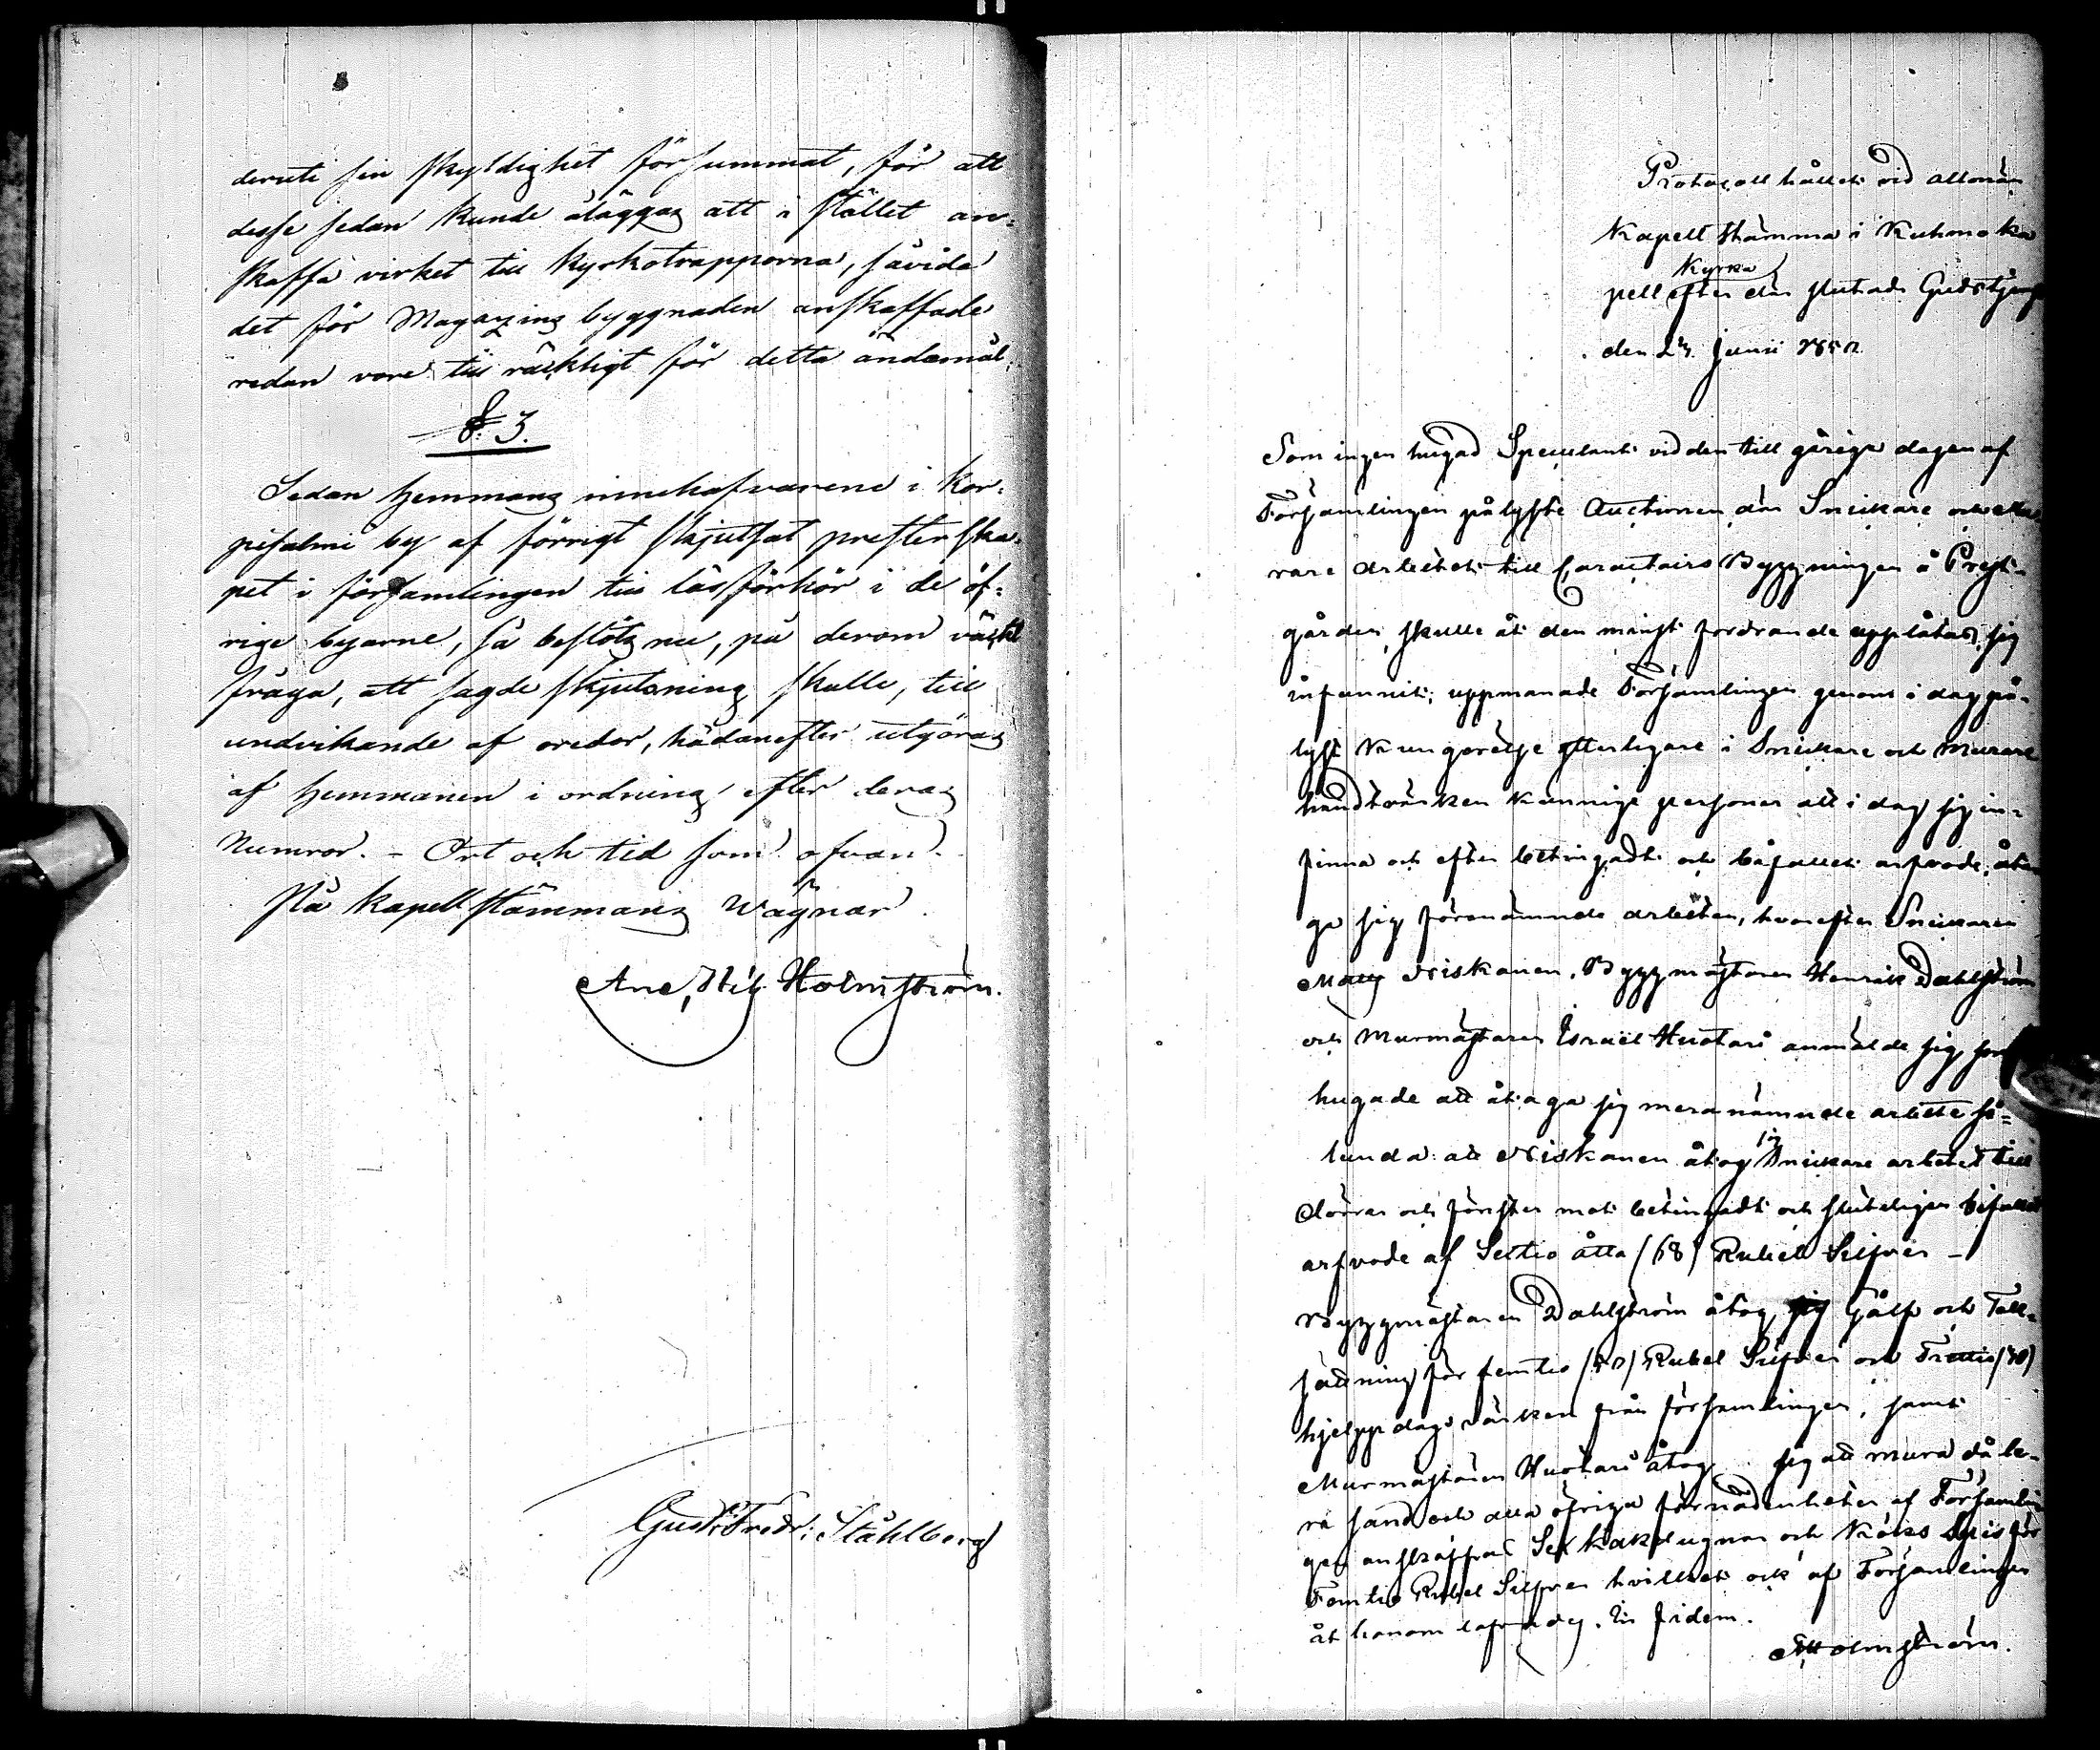 deruti sin skyldighet försummat, för att
desse sedan kunde åläggas att i stället an-
skaffa virket till kyrkotrapporna, såvida
det för Magazins byggnaden anskaffade
redan vore till räckligt för detta ändamål.
§. 3.
Sedan hemmans innehafvarene i Kor-
pisalmi by af förrigt skjutsat presterska-
pet i församlingen till läsförhör i de öf-
rige byarne, så beslöts nu, på derom väckt
fråga, att sagde skjutsning skulle, till
undvikande af oredor, hädanefter utgöras
af hemmanen i ordning efter deras
Numror. - Ort och tid som ofvan.
På kapellstämmans wägnar.
And. Wilh. Holmström.
Gust: Fredr: Ståhlberg
Protocoll hållet vid allmän
Kapell stämma i Kuhmo ka
pell Kyrka efter den slutade Gudstjenst
den 24 Junii 1850
Som ingen hugad Speculant vid den till gårige dagen af
Församlingen pålyste Auctionen då Snickare och mu
rare arbetet till Caractairs Byggningen å Prest-
gården, skulle åt den minst fordrande upplåtas, sig
infunnit; uppmanade Församlingen genom i dag på-
lyst Kungörelse ytterligare i Snickare och Murare
handtvärken kunnige personer att i dag sig in-
finna och efter betingadt och bifallet arfvode, åta
ga sig förenämnde arbeten, hvarefter Snickaren
Matts Niskanen, Byggmästaren Henrik Dahlström
och Murmästaren Israël Huotari anmälde sig som
hugade att åtaga sig meranämnde arbete så-
lunda att Niskanen åtog sig Snickare arbetet till
dörrar och fönster mot betingadt och slutligen bifallet
arfvode af Sextio åtta (68) Rubel Silfver -
Byggmästaren Dahlström åtog sig Gålf och Tak-
sättning för femtio (50) Rubel Silfver och Trettio (30)
hjelppdagsvärken från församlingen, samt
Murmästaren Huotari åtog sig att mura då le-
ra sand och alla öfriga förnödenheter af Församlin
gen anskaffas Sex kakelugnar och Köks Spis för
Femtio Rubel Silfver hvilket ock af Församlingen
åt honom lofvades. In fidem.
AW Holmström.